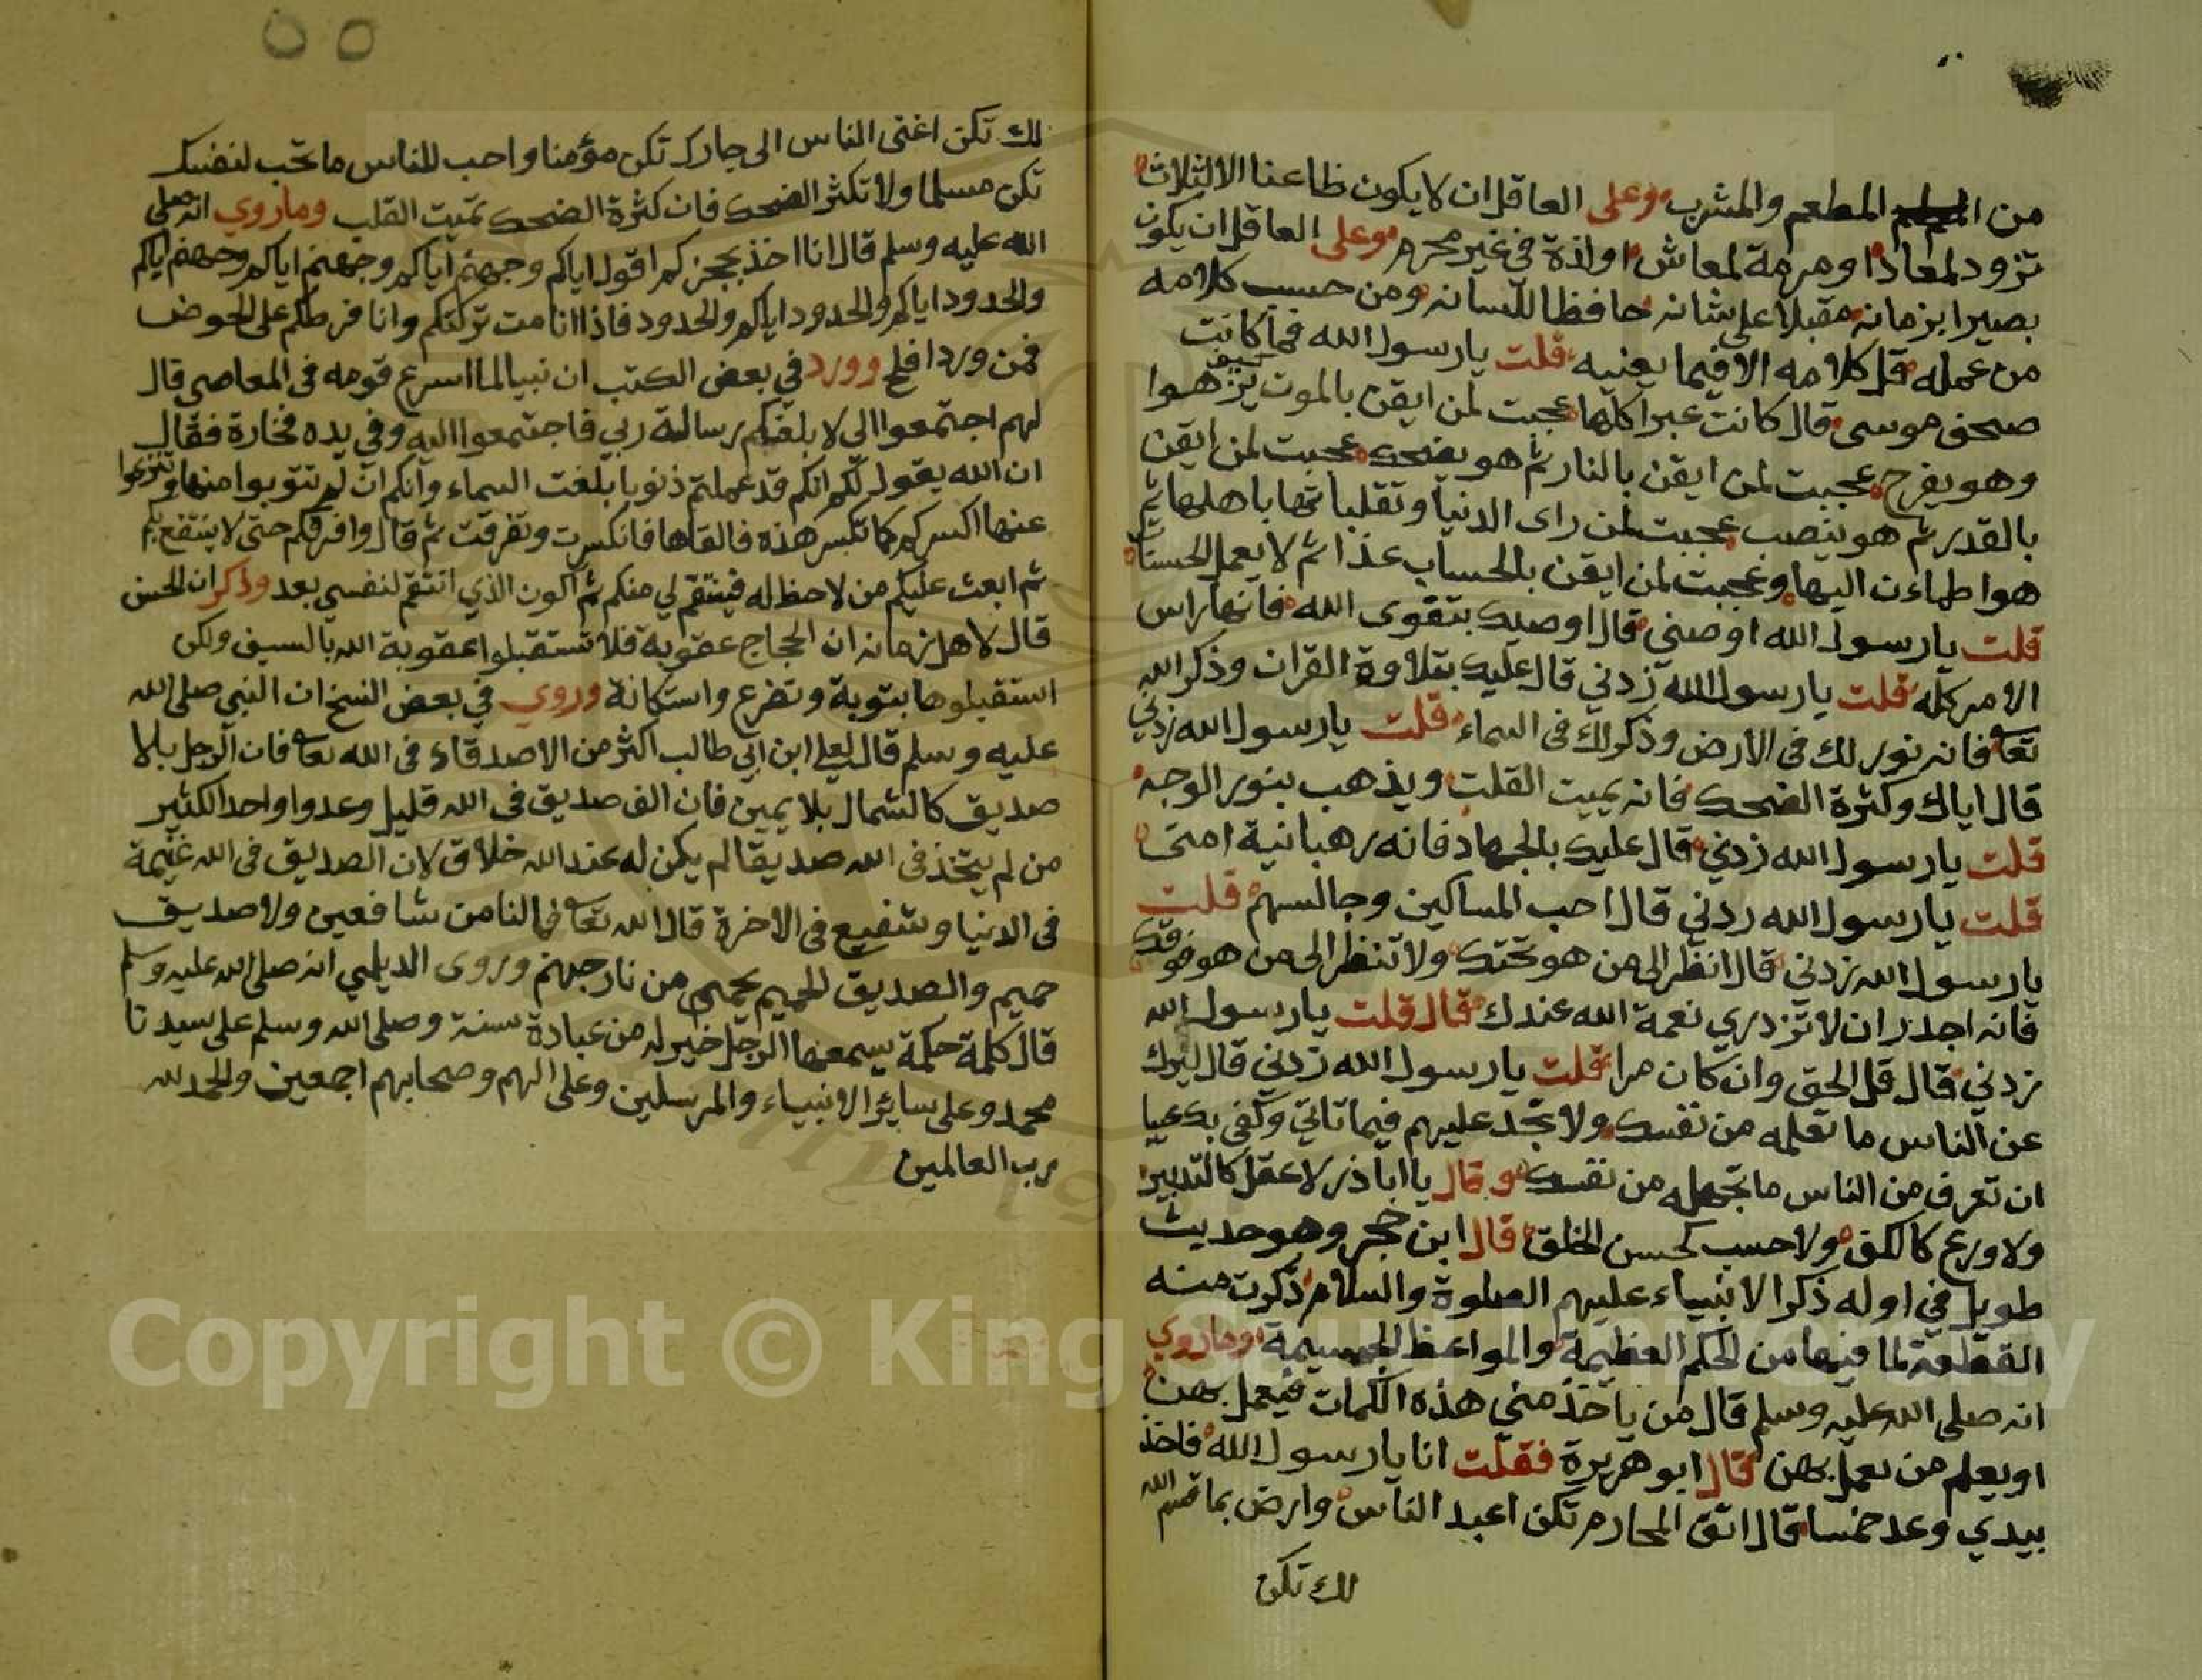 من المطعم والمشرب وعلى العاقل ان لا يكون ظاعنا الا لثلاث
تزود لمعاد او مرمة لمعاش او لذة في غير محرم وعلى العاقل ان يكون
بصيرا بزمانه مقبلا على شانه حافظا للسانه ومن حسب كلامه
من عمله قل كلامه الا فيما يعنيه قلت يارسول الله فما كانت
صحف موسى قال كانت عبرا كلها عجبت لمن ايقن بالموت كيف هوا
وهو يفرح عجبت لمن ايقن بالنار ثم هو يضحك عجبت لمن ايقن
بالقدر ثم هو ينصب عجبت لمن راى الدنيا وتقلباتها باهلها ثم
هو اطماءن اليها وعجبت لمن ايقن بالحساب غدا ثم لا يعمل الحسنات
قلت يارسول الله اوصني قال اوصيك بتقوى الله فانها راس
الامر كله قلت يارسول الله زدني قال عليك بتلاوة القران وذكر الله
تعا فانه نور لك في الارض وذكر لك فى السماء قلت يارسول الله زدني
قال اياك وكثرة الضحك فانه يميت القلت ويذهب بنور الوجه
قلت يارسول الله زدني قال عليك بالجهاد فانه رهبانية امتى
قلت يارسول الله ردني قال احب المساكين وجالسهم قلت
يارسول الله زدني قال انظر الى من هو تحتك ولا تنظر الى من هو فوقك
فانه اجدر ان لا تزدري نعمة الله عندك قال قلت يارسول الله
زدني قال قل الحق وان كان مرا قلت يارسول الله زدني قال ليردك
عن الناس ما تعلمه من نفسك ولا تجد عليهم فيما تاتي وكفى بك عيبا
ان تعرف من الناس ما تجهله من نفسك وقال يا ابا ذر لا عقل كالتدبير
ولا ورع كالكف ولا حسب كحسن الخلق قال ابن حجر وهو حديث
طويل في اوله ذكر الانبياء عليهم الصلوة والسلام ذكرت منه
القطعة لما فيها من الحكم العظيمة والمواعظ الجسيمة وما روي
انه صلى الله عليه وسلم قال من ياخذ مني هذه الكلمات فيعمل بهن
او يعلم من يعمل بهن قال ابو هريرة فقلت انا يارسول الله فاخذ
بيدي وعد خمسا قال اتق المحارم تكن اعبد الناس وارض بما قسم الله
لك تكن
لك تكن اغنى الناس الى جارك تكن مؤمنا واحب للناس ما تحب لنفسك
تكن مسلما ولا تكثر الضحك فان كثرة الضحك تميت القلب وما روي انه صلى
الله عليه وسلم قال انا اخذ بحجزكم اقول اياكم وجهنم اياكم وجهنم اياكم وجهنم اياكم
والحدود اياكم والحدود اياكم والحدود فاذا انا مت تركتكم وانا فرطكم على الحوض
فمن ورد افلح وورد في بعض الكتب ان نبيا لما اسرع قومه فى المعاصى قال
لهم اجتمعوا الى لابلغكم رسالة ربي فاجتمعوا اليه وفي يده فخارة فقال
ان الله يقول لكم انكم قد عملتم ذنوبا بلغت السماء وانكم ان لم تتوبوا منها وتنزعوا
عنها اكسركم كما تكسر هذه فالقاها فانكسرت وتفرقت ثم قال وافرقكم حتى لا ينتفع بكم
ثم ابعث عليكم من لا حظ له فينتقم لي منكم ثم اكون الذي انتقم لنفسي بعد وذكر ان الحسن
قال لاهل زمانه ان الحجاج عقوبة فلا تستقبلوا عقوبة الله بالسيف ولكن
استقبلوها بتوبة وتضرع واستكانة وروي في بعض النسخ ان النبي صلى الله
عليه وسلم قال لعلي ابن ابي طالب اكثر من الاصدقاء فى الله تعا فان الرجل بلا
صديق كالشمال بلا يمين فان الف صديق فى الله قليل وعدوا واحد الكثير
من لم يتخذ فى الله صديقا لم يكن له عند الله خلاق لان الصديق فى الله غنيمة
فى الدنيا وشفيع فى الاخرة قال الله تعا فما لنا من شافعين ولا صديق
حميم والصديق الحميم يحمى من نار جهنم وروى الديلمي انه صلى الله عليه وسلم
قال كلمة حكمة يسمعها الرجل خير له من عبادة سنة وصلى الله وسلم على سيدنا
محمد وعلى سائر الانبياء والمرسلين وعلى الهم وصحابهم اجمعين والحمد لله
رب العالمين
Copyright © King Saud University